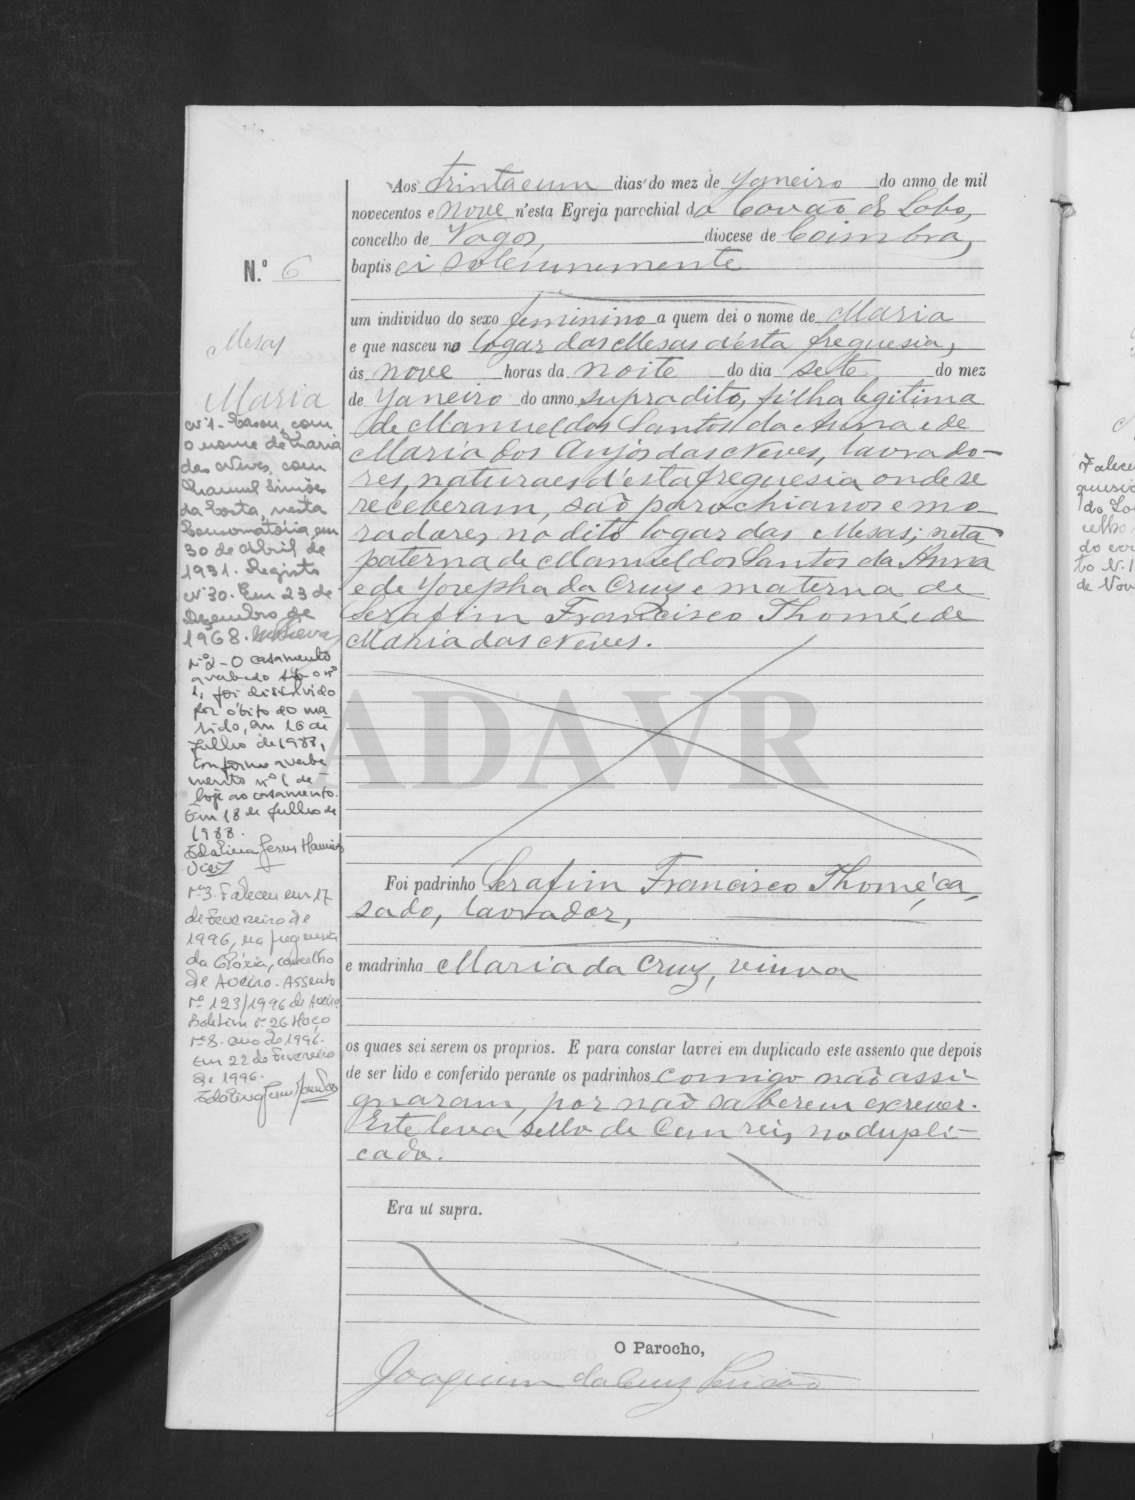 Aos trinta e um dias do mez de Janeiro do anno de mil
novecentos e nove n'esta Egreja parochial da Covão do Lobo,
concelho de Vagos, diocese de Coimbra,
baptisei solemnemente
N.º 6
um individuo do sexo feminino a quem dei o nome de Maria
e que nasceu no logar das Mesas d'esta freguesia,
ás nove horas da noite do dia sete do mez
de Janeiro do anno supradito, filha legitima
de Manuel dos Santos da Anna e de
Maria dos Anjos das Neves, lavrado-
res, naturaes d'esta freguesia onde se
receberam, são parochianos e mo-
radores no dito logar das Mesas; neta
paterna de Manuel dos Santos da Anna
e de Josepha da Cruz e materna de
Serafim Francisco Thomé e de
Maria das Neves.
Mesas
Maria
Nº1- Casou, com
o nome de Maria
das Neves, com
Manuel Simões
da Costa, nesta
Conservatória, em
30 de Abril de
1931. Registo
Nº 30. Em 23 de
Dezembro de
1968.
Nº2 - O casamento
averbado sob o nº
1, foi dissolvido
por óbito do ma
rido, em 16 de
Julho de 1988,
conforme averba
mento nº 1 de
hoje ao casamento.
Em 18 de Julho de
1988.
Idalina Jesus
Nº3. Faleceu em 17
de Fevereiro de
1996, na freguesia
da Glória, concelho
de Aveiro. Assento
nº 123/1996 de Aveiro
Boletim nº 26 Maço
nº 8. ano de 1996.
Em 22 de Fevereiro
de 1996.
ADAVR
Foi padrinho Serafim Francisco Thomé, ca-
sado, lavrador,
e madrinha Maria da Cruz, viuva
os quaes sei serem os proprios. E para constar lavrei em duplicado este assento que depois
de ser lido e conferido perante os padrinhos comigo não assi-
gnaram, por não saberem escrever.
Este leva sello de cem reis no dupli-
cado.
Era ut supra.
O Parocho,
Joaquim da Cruz
Falece
do
de Nov